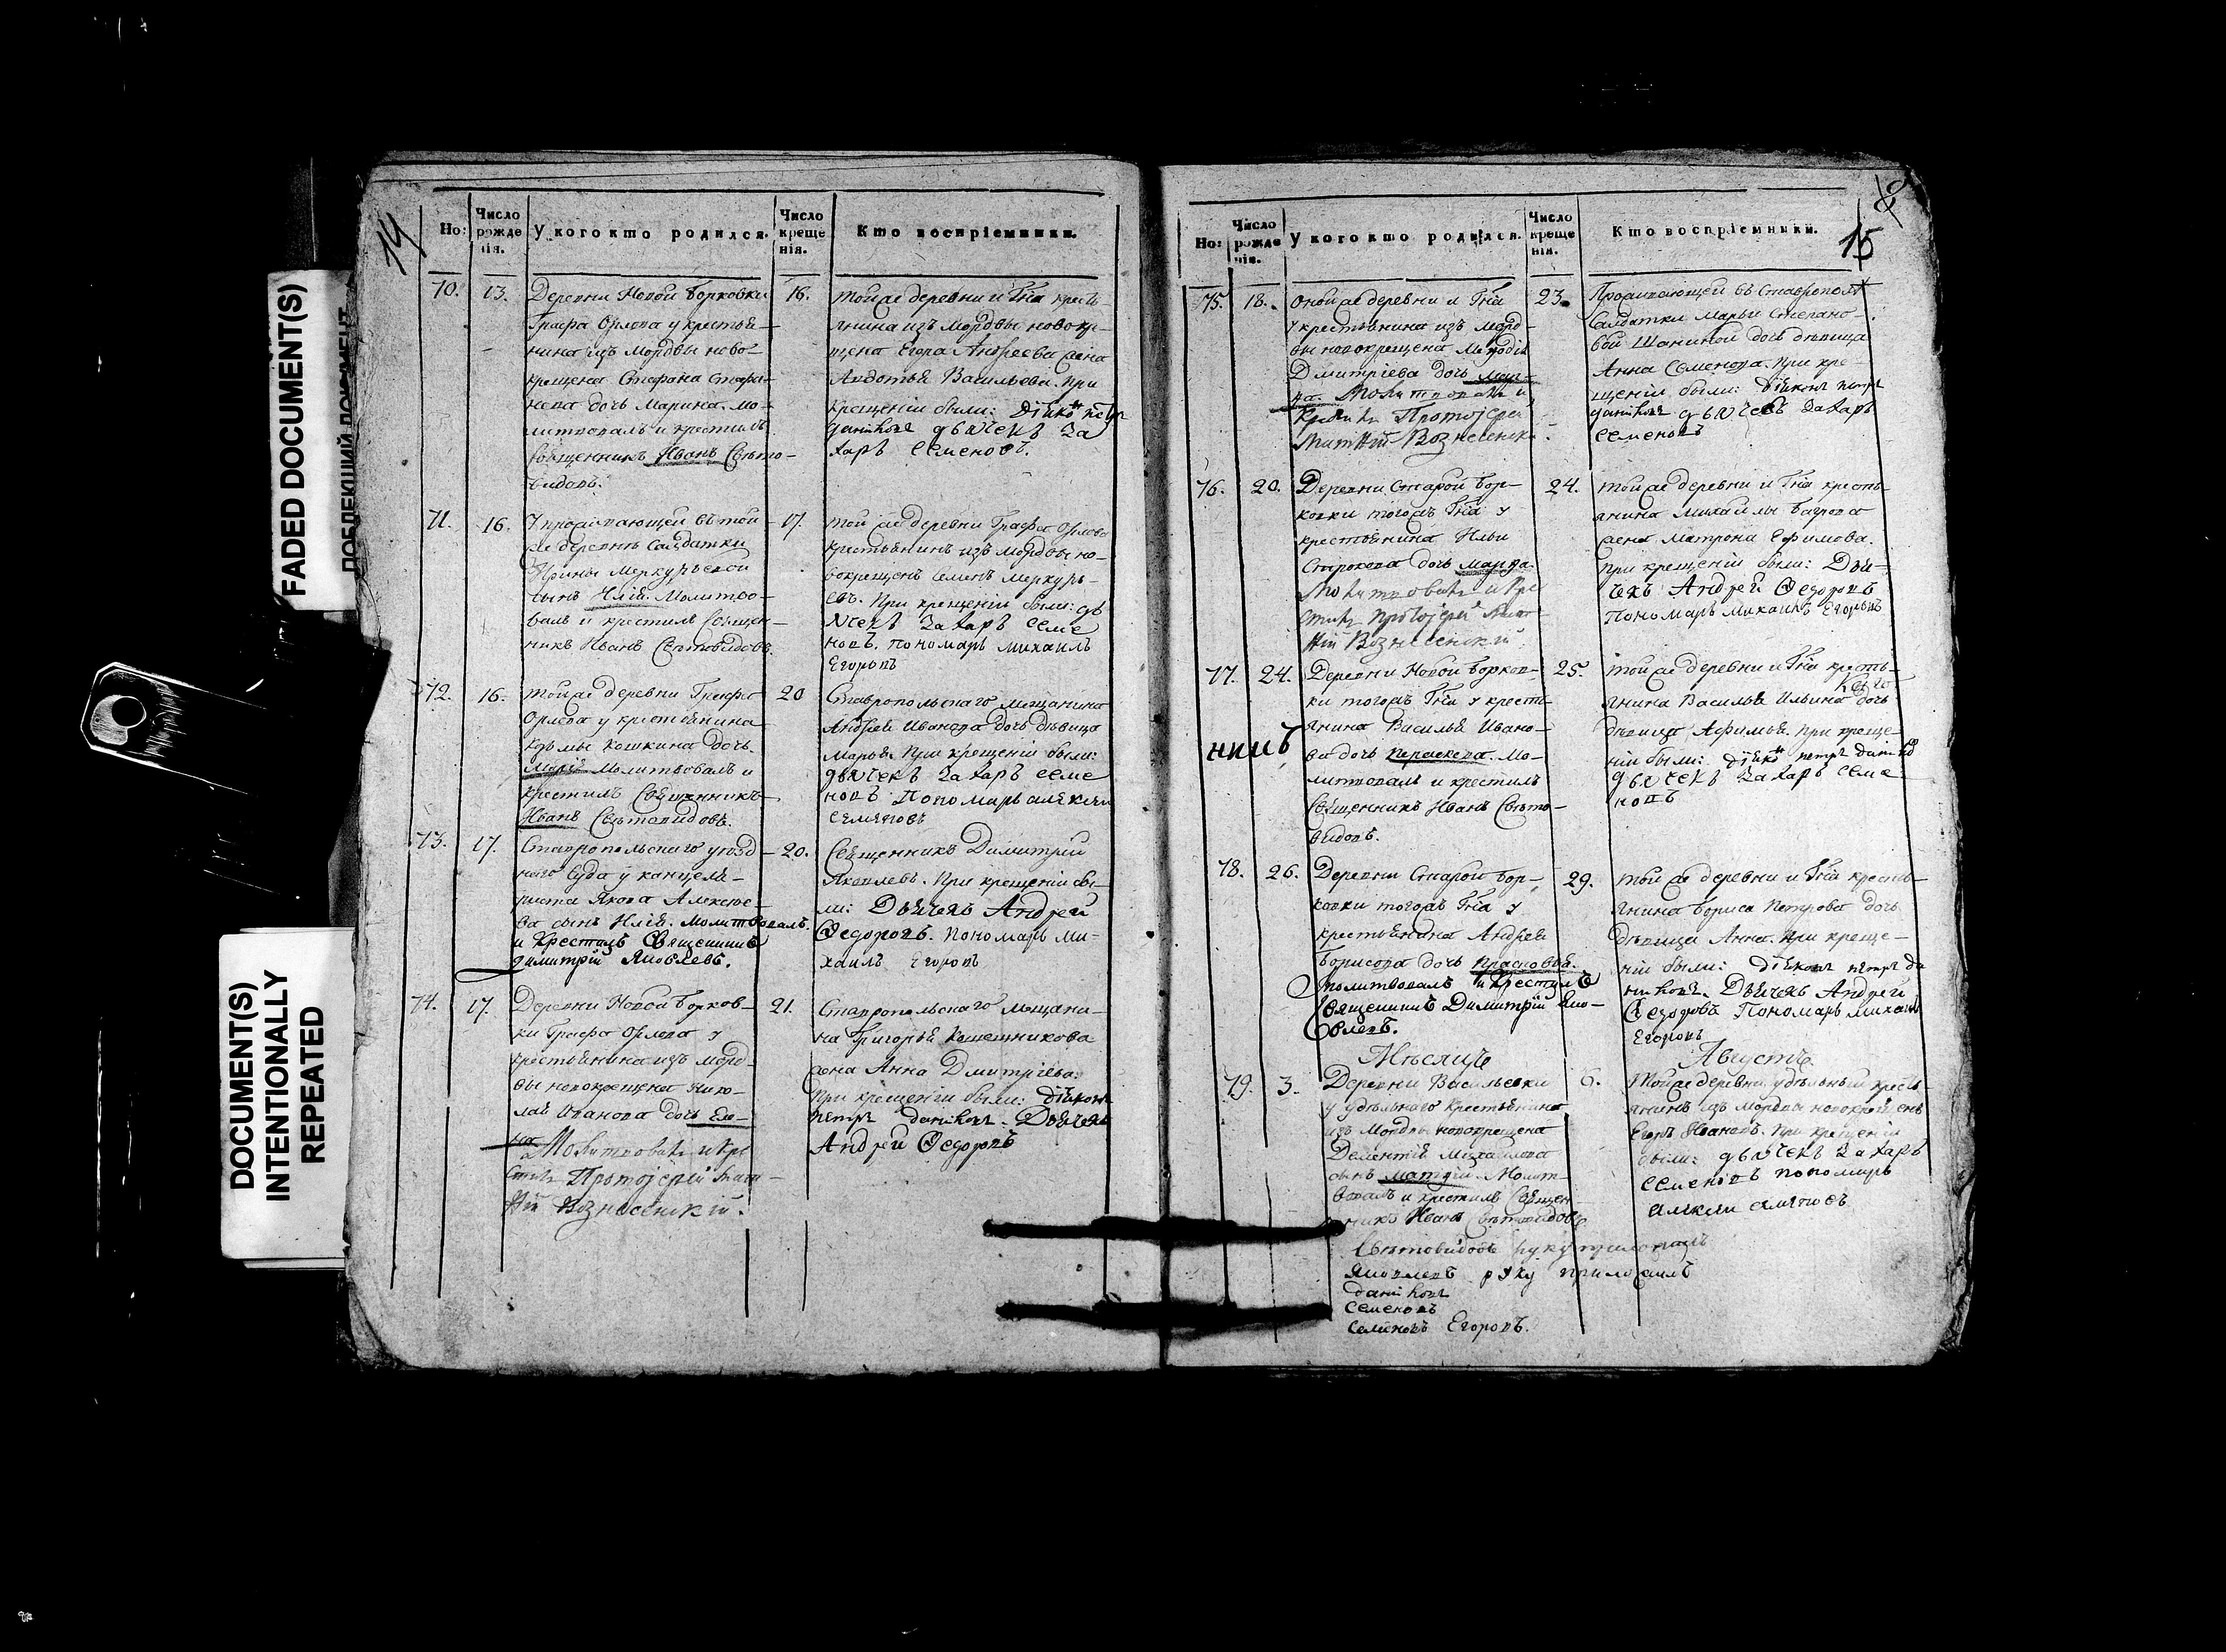 FADED DOCUMENT(S)
DOCUMENT(S)
INTENTIONALLY
REPEATED
14
Но:
Число рожденія.
У кого кто родился.
Число крещенія.
Кто воспріемники.
70. 13. Деревни Новой Борковки
Графа Орлова у крестья-
нина изъ Мордвы ново-
крещена Стефана Стефа-
нова дочь Марина. мо-
литвовалъ и крестилъ
священникъ Иванъ Свѣто-
видовъ.
16. тойже деревни и Гна кресть-
янина изъ мордвы новокре-
щена Егора Андреева жена
Авдотья Васильева. При
крещеніи были: діяко петр
даниловъ дьячекъ За
харъ Семеновъ.
71. 16. У проживающей въ той
же деревнѣ Салдатки
Ирины Меркурьевой
сынъ Илія. Молитво-
валъ и крестилъ Священ-
никъ Иванъ Свѣтовидовъ.
17. той же деревни Графа Орлова
крестьянинъ изъ мордвы но-
вокрещенъ Семенъ Меркурь-
евъ. При крещеніи были: дь
ячекъ Захаръ Семе
новъ. пономарь михаилъ
Егоровъ
72. 16. тойже деревни Графа
Орлова у крестьянина
Кузьмы Кошкина дочь
Марія Молитвовалъ и
крестилъ Священникъ
Иванъ Свѣтовидовъ.
20 Ставропольскаго мещанина
Андрея Иванова дочь дѣвица
Марья. При крещеніи были:
дьячекъ Захаръ Семе
новъ Пономарь алексеи
семяновъ
73. 17. Ставропольскаго уѣзд-
наго Суда у канцеля-
риста Якова Алексѣе-
ва сынъ Илія. Молитвовалъ
и Крестилъ Священникъ
Димитрій Яковлевъ.
20. Священникъ Димитрій
Яковлевъ. При крещеніи бы-
ли: Дьячекъ Андрей
Федоровъ. Пономарь Ми-
хаилъ Егоровъ
74. 17. Деревни Новой Борков-
ки Графа Орлова у
крестьянина изъ морд-
вы новокрещена Нико-
лая Иванова дочь Еле-
на Молитвовалъ и кре
стилъ Протоіерей
Вознесенскій.
21. Ставропольскаго мещани-
на Григорья Колешникова
жена Анна Дмитріева.
При крещеніи были: діяконъ
петръ даниловъ. Дьячекъ
Андрей Федоровъ
15
Но:
Число рожденія.
У кого кто родился.
Число крещенія.
Кто воспріемники.
75. 18. онойже деревни и Гна
у крестьянина изъ морд-
вы новокрещена Мефодія
Дмитріева дочь Мари-
на. Молитвовалъ и
Крестилъ Протоіерей
Вознесенскі
23. Проживающей въ Ставрополѣ
Салдатки Марьи Степано-
вой Шаниной дочь дѣвица
Анна Семенова. При кре-
щеніи были: діяконъ петръ
даниловъ дьячекъ Захаръ
Семеновъ
76. 20. Деревни Старой Бор-
ковки тогожъ Гна у
крестьянина Ильи
дочь Марѳа.
Молитвовалъ и Кре
стилъ Протоіерей
Вознесенскій
24. тойже деревни и Гна кресть-
янина Михайлы Багрова
жена Матрона Ефимова.
При крещеніи были: Дья-
чекъ Андрей Федоровъ
Пономарь Михаилъ Егоровъ
77. 24. Деревни Новой Борков-
ки тогожъ Гна у кресть-
янина Василья Ивано-
ва дочь Параскева. Мо-
литвовалъ и крестилъ
Священникъ Иванъ Свѣто-
видовъ.
никъ
25. тойже деревни и Гна кресть-
янина Василья Ильина дочь
дѣвица Афимья. При креще-
ніи были: діяко петръ данило
дьячекъ Захаръ Семе
новъ
78. 26. Деревни Старой Бор-
ковки тогожъ Гна у
крестьянина Андрея
Борисова дочь Прасковья.
Молитвовалъ и Крестилъ
Священникъ Димитрій Яко-
влевъ.
29. той же деревни и Гна кресть-
янина Бориса Петрова дочь
дѣвица Анна. При креще-
ніи были: діяконъ петръ да
ниловъ. Дьячекъ Андрей
Федоровъ Пономарь Михаилъ
Егоровъ
Мѣсяцъ Августъ
79. 3. Деревни Васильевки
у удѣльнаго Крестьянина
изъ Мордвы новокрещена
Дементія Михайлова
сынъ Матѳей. Молит-
вовалъ и крестилъ Священ-
никъ Иванъ Свѣтовидовъ
6. Тойже деревни удѣльный кресть
янинъ изъ Мордвы новокрещенъ
Егоръ Ивановъ. При крещеніи
были: дьячекъ Захаръ
Семеновъ пономарь
алексеи семяновъ
Свѣтовидовъ руку приложилъ
Яковлевъ руку приложилъ
даниловъ
Семеновъ
Семеновъ Егоровъ.